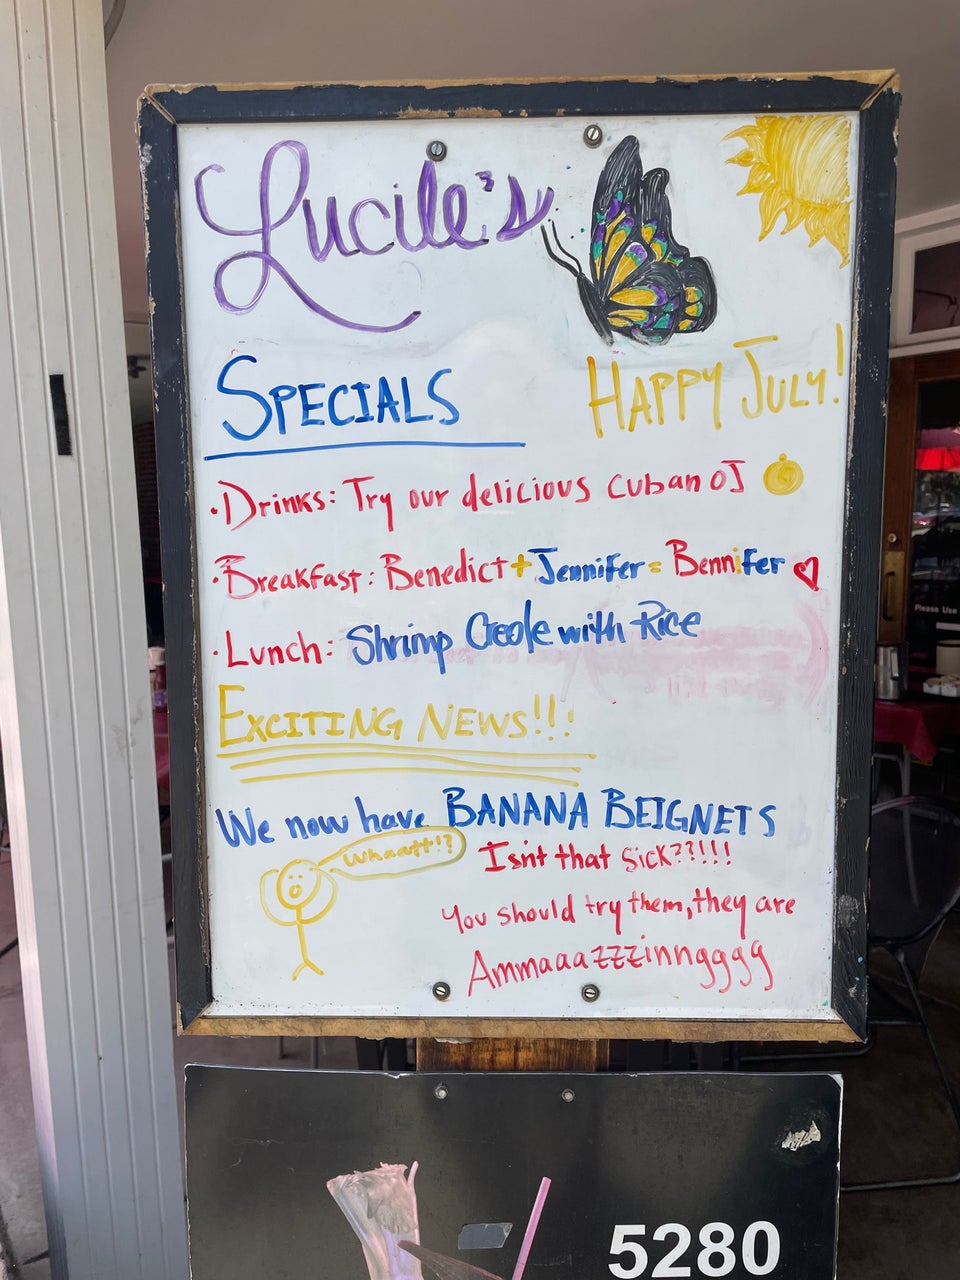 Lucile's
SPECIALS
HAPPY JULY!
· Drinks: Try our delicious Cuban OJ
· Breakfast: Benedict + Jennifer = Bennifer
· Lunch: Shrimp Creole with Rice
EXCITING NEWS!!!
We now have BANANA BEIGNETS
Whaatt!?
Isn't that sick??!!!
You should try them, they are
Ammaaazzzinngggg
Please Use
5280